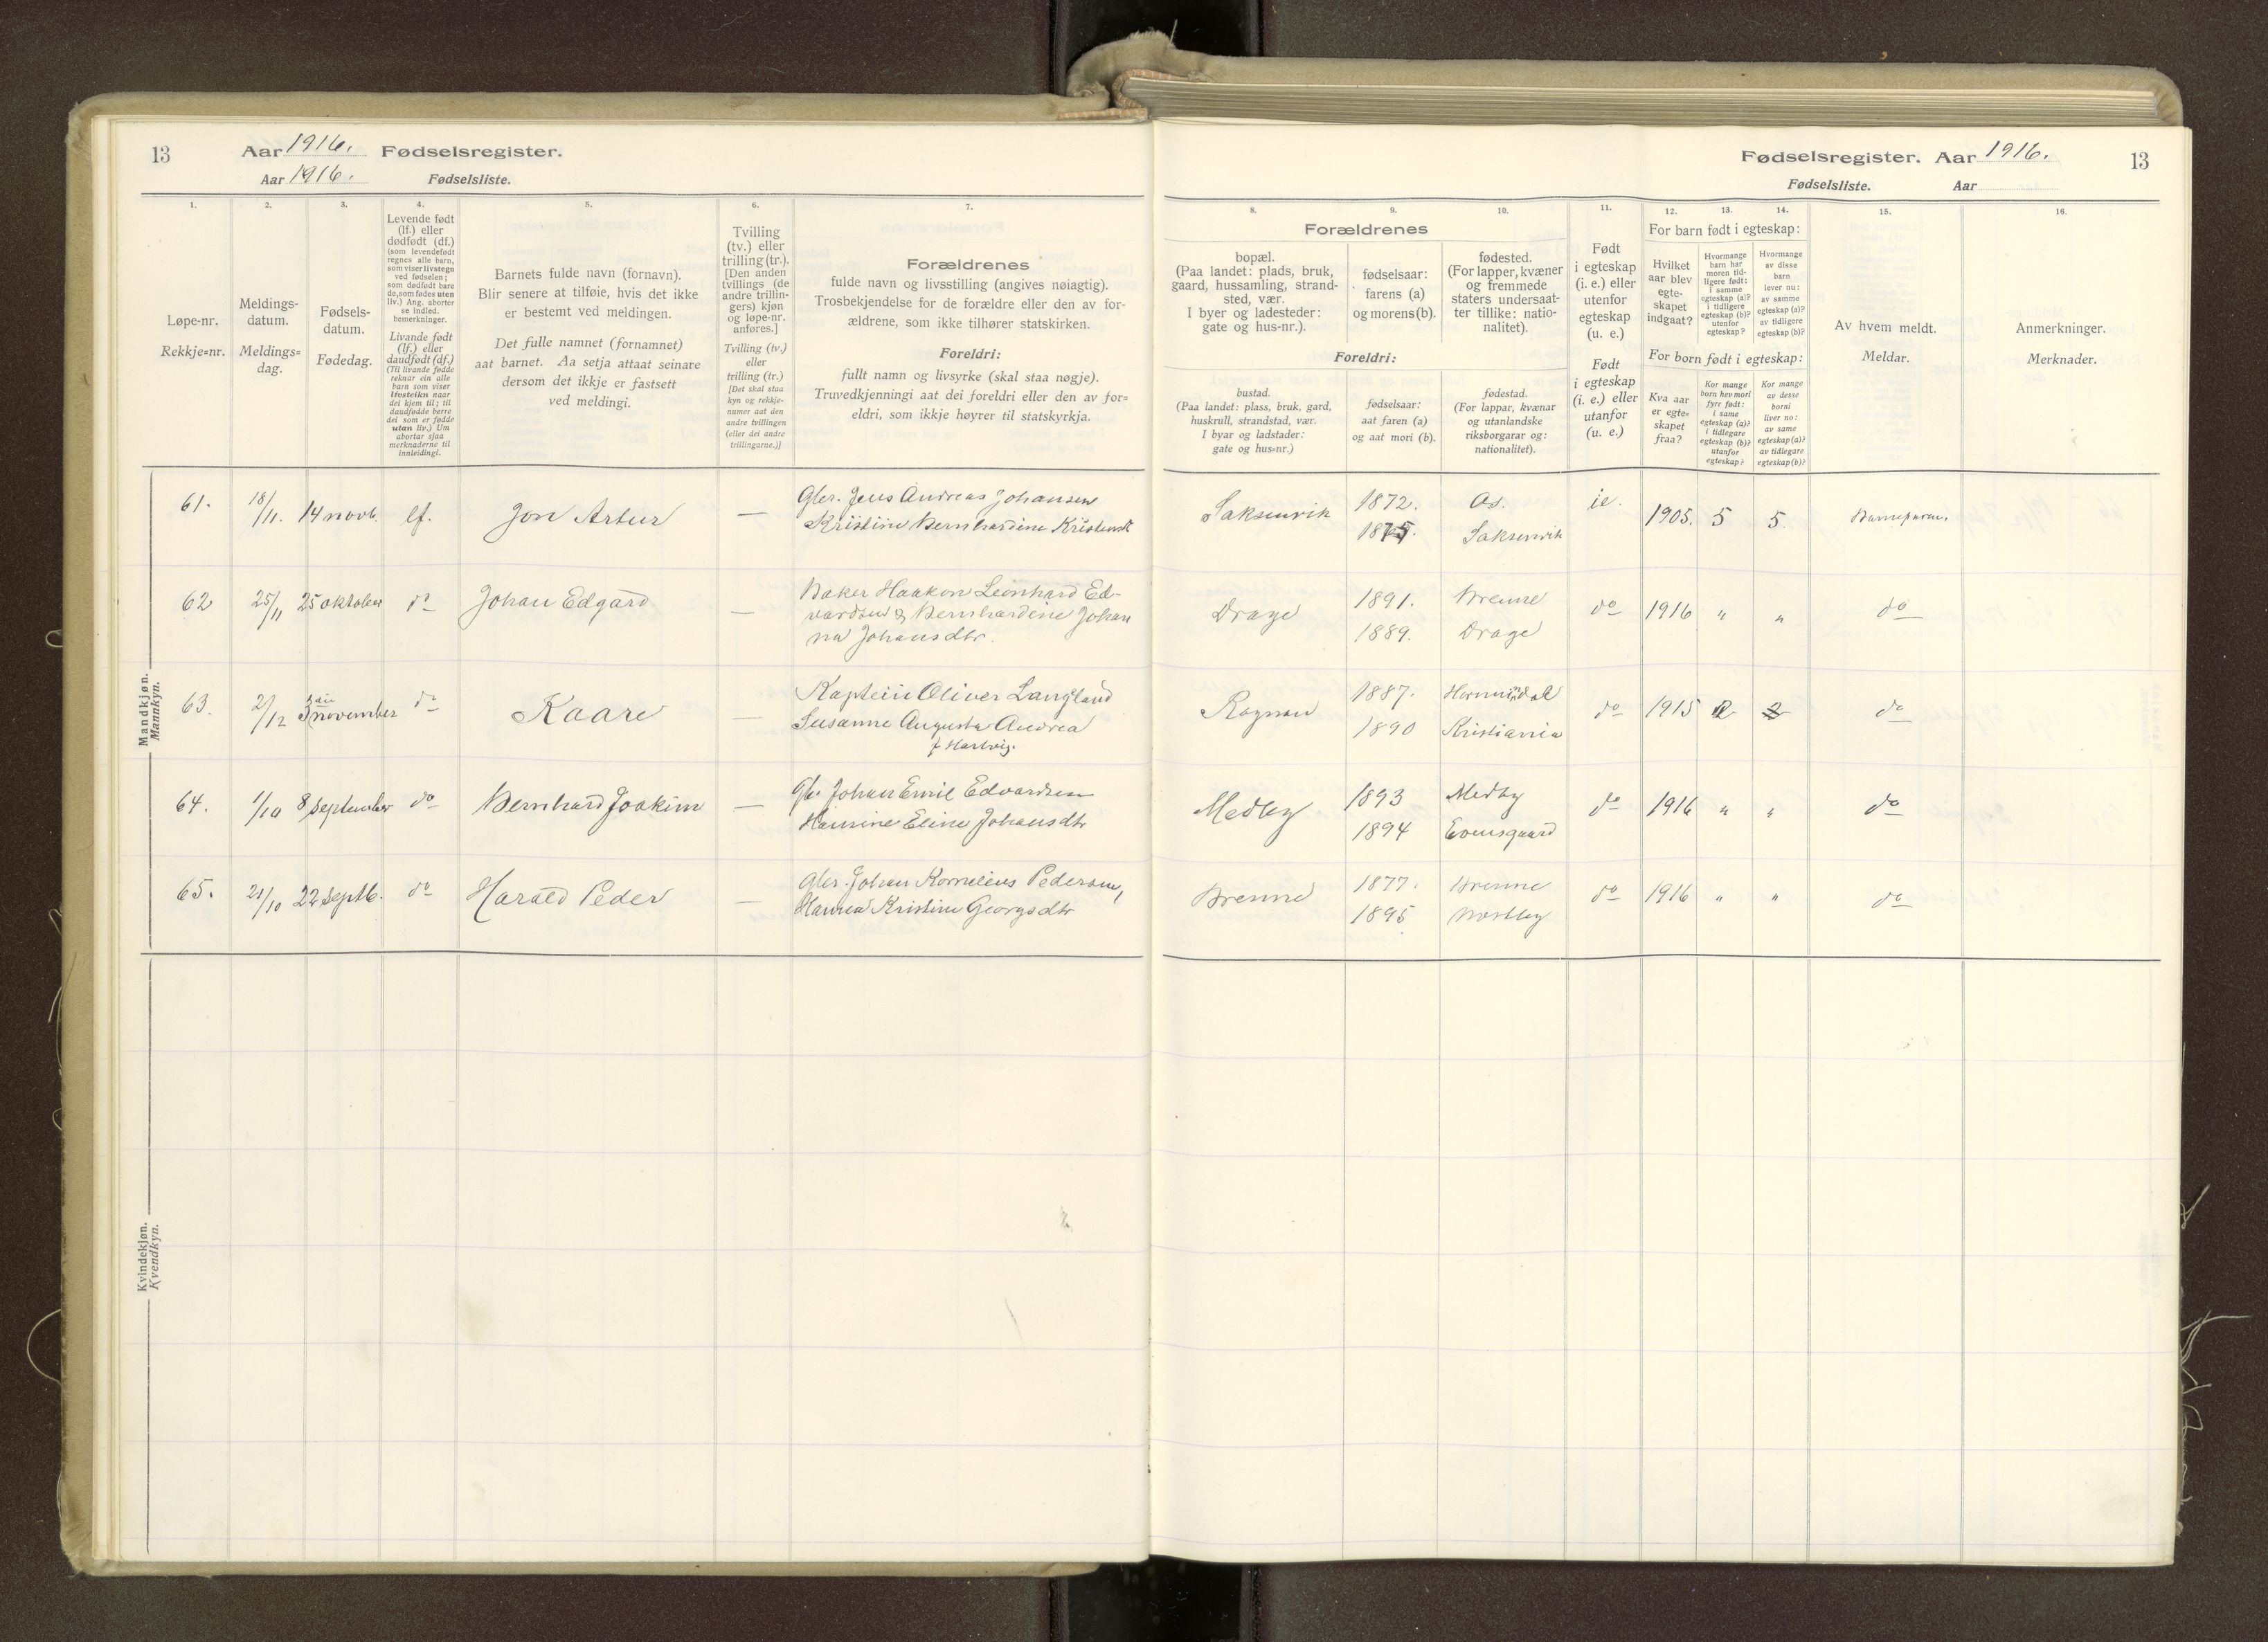 13
Aar 1916. Fødselsregister.
Aar 1916. Fødselsliste.
1.
2.
3.
4.
5.
6.
7.
Løpe-nr.
Rekkje=nr.
Meldings-
datum.
Meldings=
dag.
Fødsels-
datum.
Fødedag.
Levende født
(lf.) eller
dødfødt (df.)
(som levendefødt
regnes alle barn,
som viser livstegn
ved fødselen;
som dødfødt bare
de, som fødes uten
liv.) Ang. aborter
se indled.
bemerkninger.
Livande født
(lf.) eller
daudfødt (df.)
(Til livande fødde
reknar ein alle
barn som viser
lfvsteikn naar
dei kjem til; til
daudfødde berre
dei som er fødde
utan liv.) Um
abortar sjaa
merknaderne til
innleidingi.
Barnets fulde navn (fornavn).
Blir senere at tilføie, hvis det ikke
er bestemt ved meldingen.
Det fulle namnet (fornamnet)
aat barnet. Aa setja attaat seinare
dersom det ikkje er fastsett
ved meldingi.
Tvilling
(tv.) eller
trilling (tr.).
[Den anden
tvillings (de
andre trillin-
gers) kjøn
og løpe-nr.
anføres.]
Tvilling (tv.)
eller
trilling (tr.)
[Det skal staa
kyn og rekkje-
numer aat den
andre tvillingen
(eller dei andre
trillingarne.)]
Forældrenes
fulde navn og livsstilling (angives nøiagtig).
Trosbekjendelse for de forældre eller den av for-
ældrene, som ikke tilhører statskirken.
Foreldri:
fullt namn og livsyrke (skal staa nøgje).
Truvedkjenningi aat dei foreldri eller den av for=
eldri, som ikkje høyrer til statskyrkja.
Mandkjøn.
Mannkyn.
61. 18/11. 14 novb. lf. Jon Artur —
Gbr. Jens Andreas Johansen
Kristine Bernhardine Kristensd.
62 25/11 25 oktober do Johan Edgard —
Baker Haakon Leonhard Ed-
vardsen & Bernhardine Johan
na Johansdtr.
63. 2/12 3die november do Kaare —
Kaptein Oliver Langland
Susanne Augusta Andrea
f Hartvig.
64. 1/10 8 september do Bernhard Joakim —
Gbr Johan Emil Edvardsen
Hannine Eline Johansdtr
65. 21/10 22 septb. do Harald Peder —
Gbr. Johan Kornelius Pedersen,
Hanna Kristine Georgsdtr
Kvindekjøn.
Kvendkyn.
Fødselsregister. Aar 1916. 13
Fødselsliste. Aar
8.
9.
10.
11.
12.
13.
14.
15.
16.
Forældrenes
bopæl.
(Paa landet: plads, bruk,
gaard, hussamling, strand-
sted, vær.
I byer og ladesteder:
gate og hus-nr.).
fødselsaar:
farens (a)
og morens (b).
fødested.
(For lapper, kvæner
og fremmede
staters undersaat-
ter tillike: natio-
nalitet).
Foreldri:
bustad.
(Paa landet: plass, bruk, gard,
huskrull, strandstad, vær.
I byar og ladstader:
gate og hus=nr.)
fødselsaar:
aat faren (a)
og aat mori (b).
fødestad.
(For lappar, kvænar
og utanlandske
riksborgarar og:
nationalitet).
Født
i egteskap
(i. e.) eller
utenfor
egteskap
(u. e.)
Født
i egteskap
(i. e.) eller
utanfor
(u. e.)
For barn født i egteskap:
Hvilket
aar blev
egte-
skapet
indgaat?
Hvormange
barn har
moren tid-
ligere født:
i samme
egteskap (a)?
i tidligere
egteskap (b)?
utenfor
egteskap?
Hvormange
av disse
barn
lever nu:
av samme
egteskap (a)?
av tidligere
egteskap (b)?
For born født i egteskap:
Kva aar
er egte=
skapet
fraa?
Kor mange
born hev mori
fyrr født:
i same
egteskap (a)?
i tidlegare
egteskap (b)?
utanfor
egteskap?
Kor mange
av desse
borni
liver no:
av same
egteskap (a)?
av tidlegare
egteskap (b)?
Av hvem meldt.
Meldar.
Anmerkninger.
Merknader.
Saksenvik 1872. Os. ie. 1905. 5 5.
1875. Saksenvik
Drage 1891. Brenne do 1916 " " do
1889. Drage
Rognan 1887. Hornindal do 1915 2 2 do
1890 Kristiania
Medby 1893 Medby do 1916 " " do
1894 Evensgaard
Brenne 1877. Brenne do 1916 " " do
1895